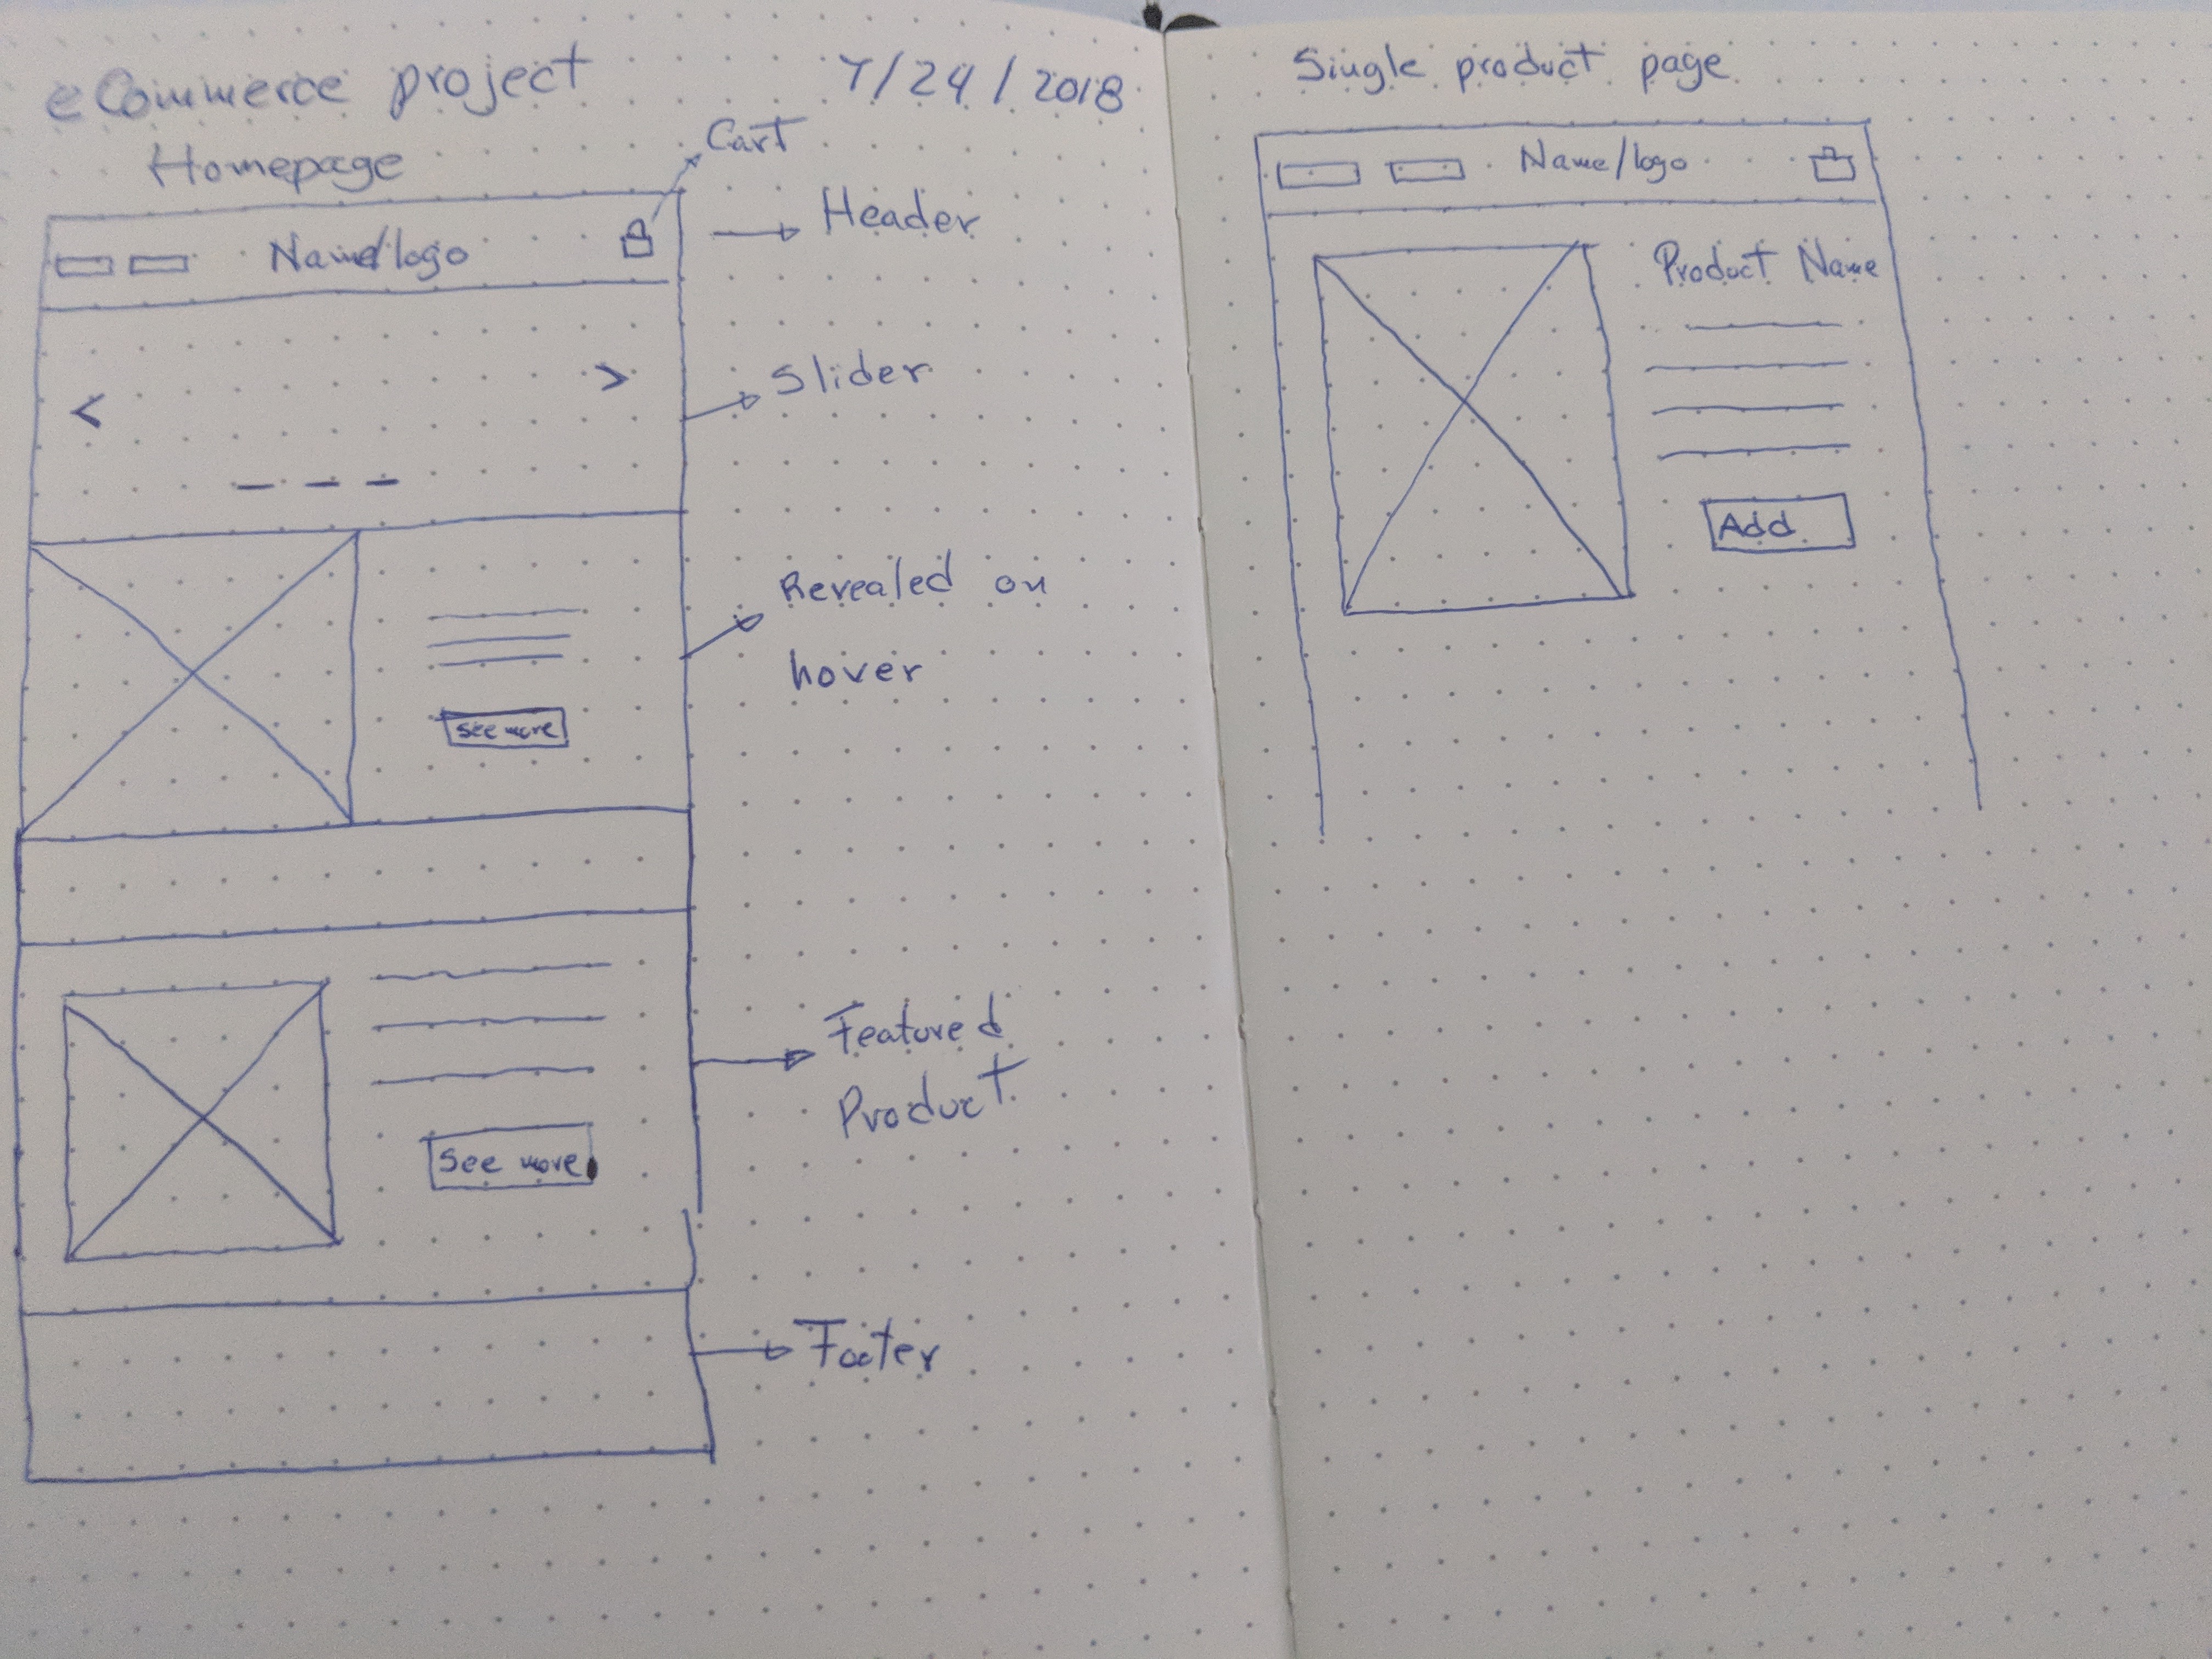 eCommerce project
7/24/2018
Homepage
Cart
Name/logo
Header
<
>
Slider
Revealed on
hover
See more
Featured
Product
See more
Footer
Single product page
Name/logo
Product Name
Add